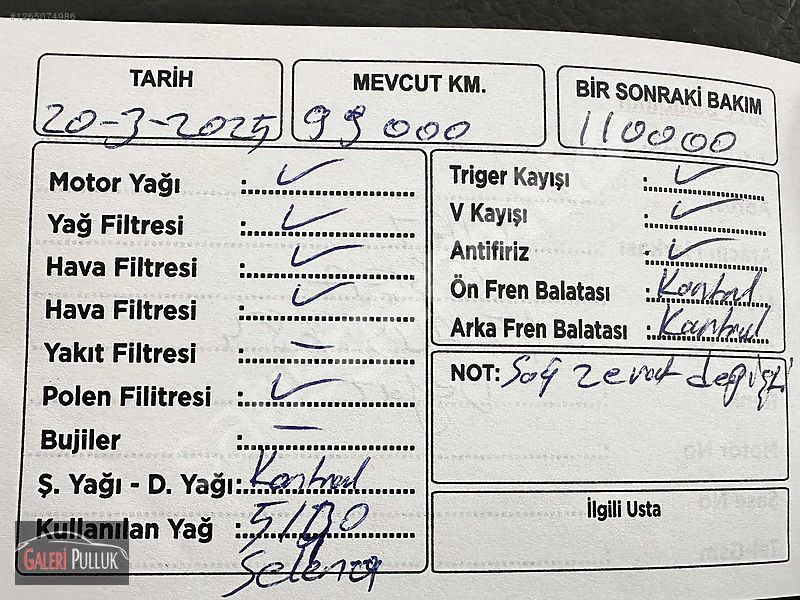 #1265074986
TARİH
20-3-2025
MEVCUT KM.
99000
BİR SONRAKİ BAKIM
110000
Motor Yağı :.... ✓
Yağ Filtresi :.... ✓
Hava Filtresi :.... ✓
Hava Filtresi :.... ✓
Yakıt Filtresi :.... —
Polen Filitresi :.... ✓
Bujiler :.... —
Ş. Yağı - D. Yağı:.... Kontrol
Kullanılan Yağ :.... 5/30
Selena
Triger Kayışı :.... ✓
V Kayışı :.... ✓
Antifiriz :.... ✓
Ön Fren Balatası :.... Kontrol
Arka Fren Balatası :.... Kontrol
NOT: Sağ değişti
İlgili Usta
GALERİ PULLUK
Motor No
Şase No
Tel-Gsm